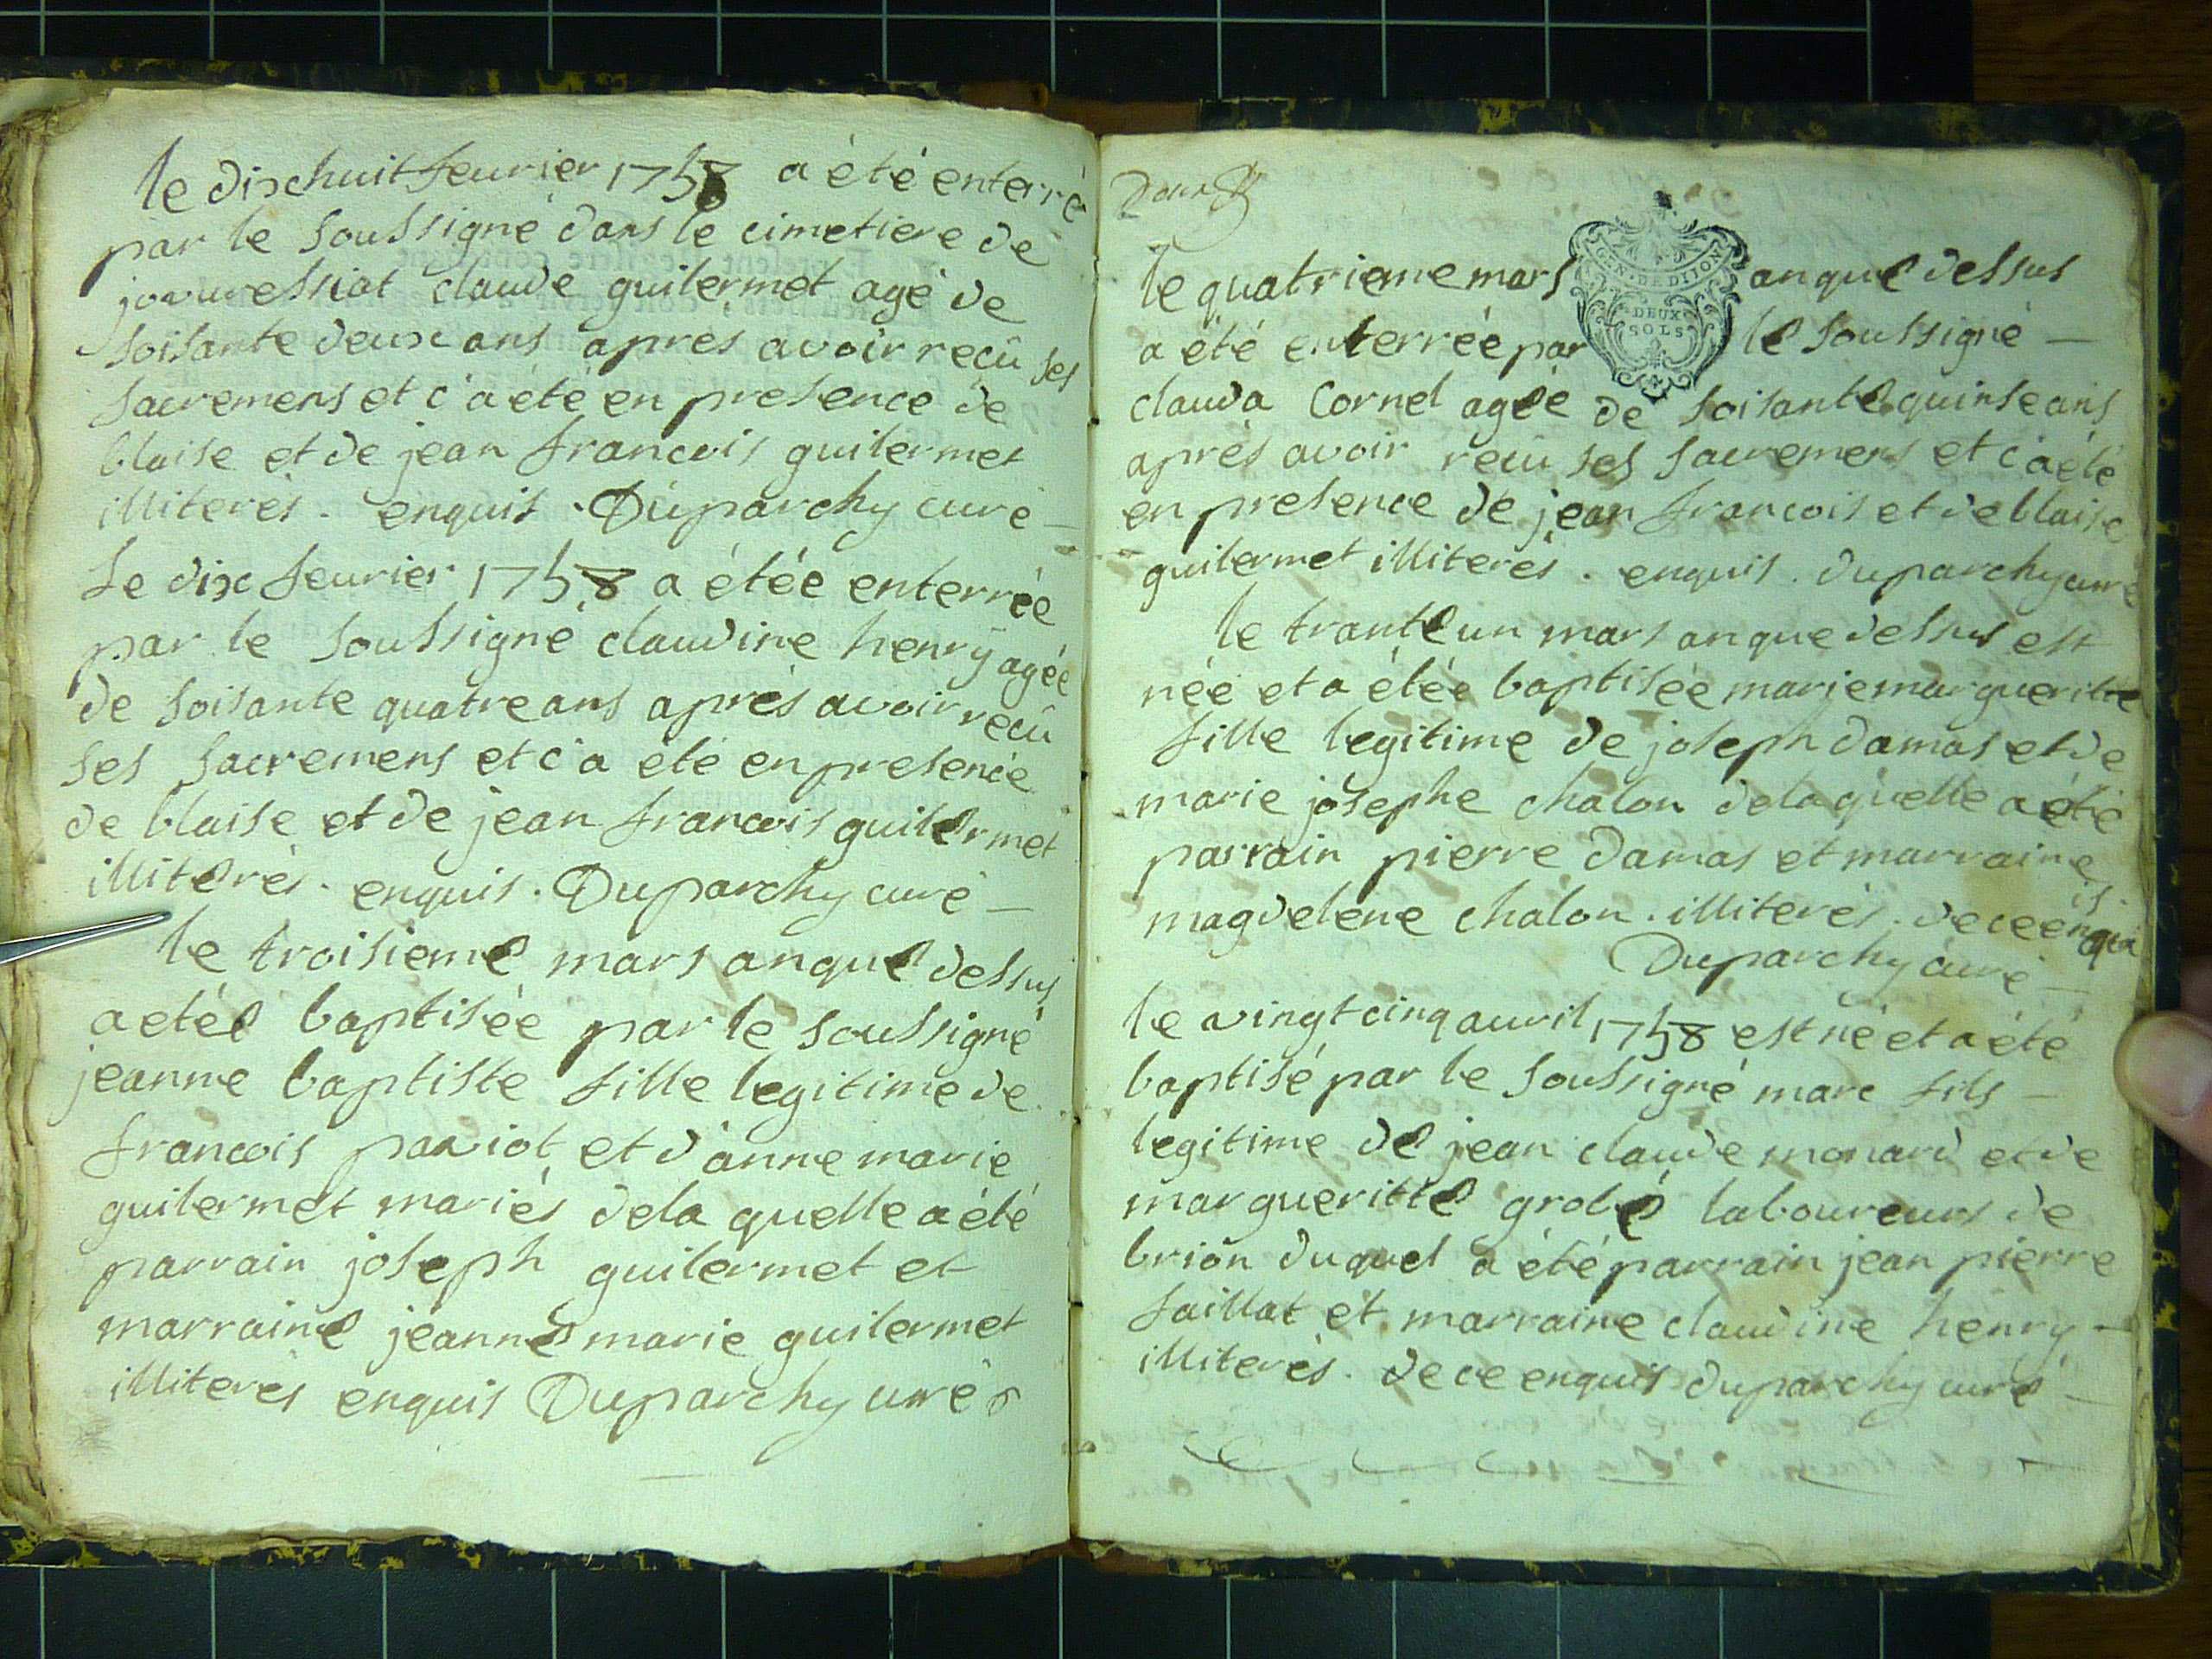 le dixhuit feurier 1758 a été enterré
par le soussigné dans le cimetiere de
jouuressiat claude guilermet agé de
soisante deux ans apres avoir recû ses
sacremens et c'a été en presence de
blaise et de jean francois guilermet
illiterés. enquis. Duparchy curé
Le dix feurier 1758 a étée enterrée
par le soussigné claudine henry agée
de soisante quatre ans aprés avoir recû
ses sacremens et c'a été en presence
de blaise et de jean francois guilermet
illiterés. enquis. Duparchy curé
le troisieme mars an que dessus
a etée baptisée par le soussigné
jeanne baptiste fille legitime de
francois paviot et d'anne marie
guilermet mariés dela quelle a été
parrain joseph guilermet et
marraine jeanne marie guilermet
illiterés enquis Duparchy curé
le quatrieme mars an que dessus
GEN. DE DIJON
DEUX
SOLS
a été enterrée par le soussigné
clauda Cornel agée de soisante quinse ans
aprés avoir recû ses sacremens et c'a été
en presence de jean francois et de blaise
guilermet illiterés. enquis. duparchy curé
le trante un mars an que dessus est
née et a étée baptisée marie marguerite
fille legitime de joseph damas et de
marie josephe chalon dela quelle a été
parrain pierre damas et marraine
magdelene chalon. illiterés. de ce enquis
Duparchy curé
le vingt cinq auril 1758 est né et a été
baptisé par le soussigné marc fils
legitime de jean claude monard et de
margueritte grobés laboureurs de
brion duquel a été parrain jean pierre
saillat et marraine claudine henry
illiterés. de ce enquis duparchy curé